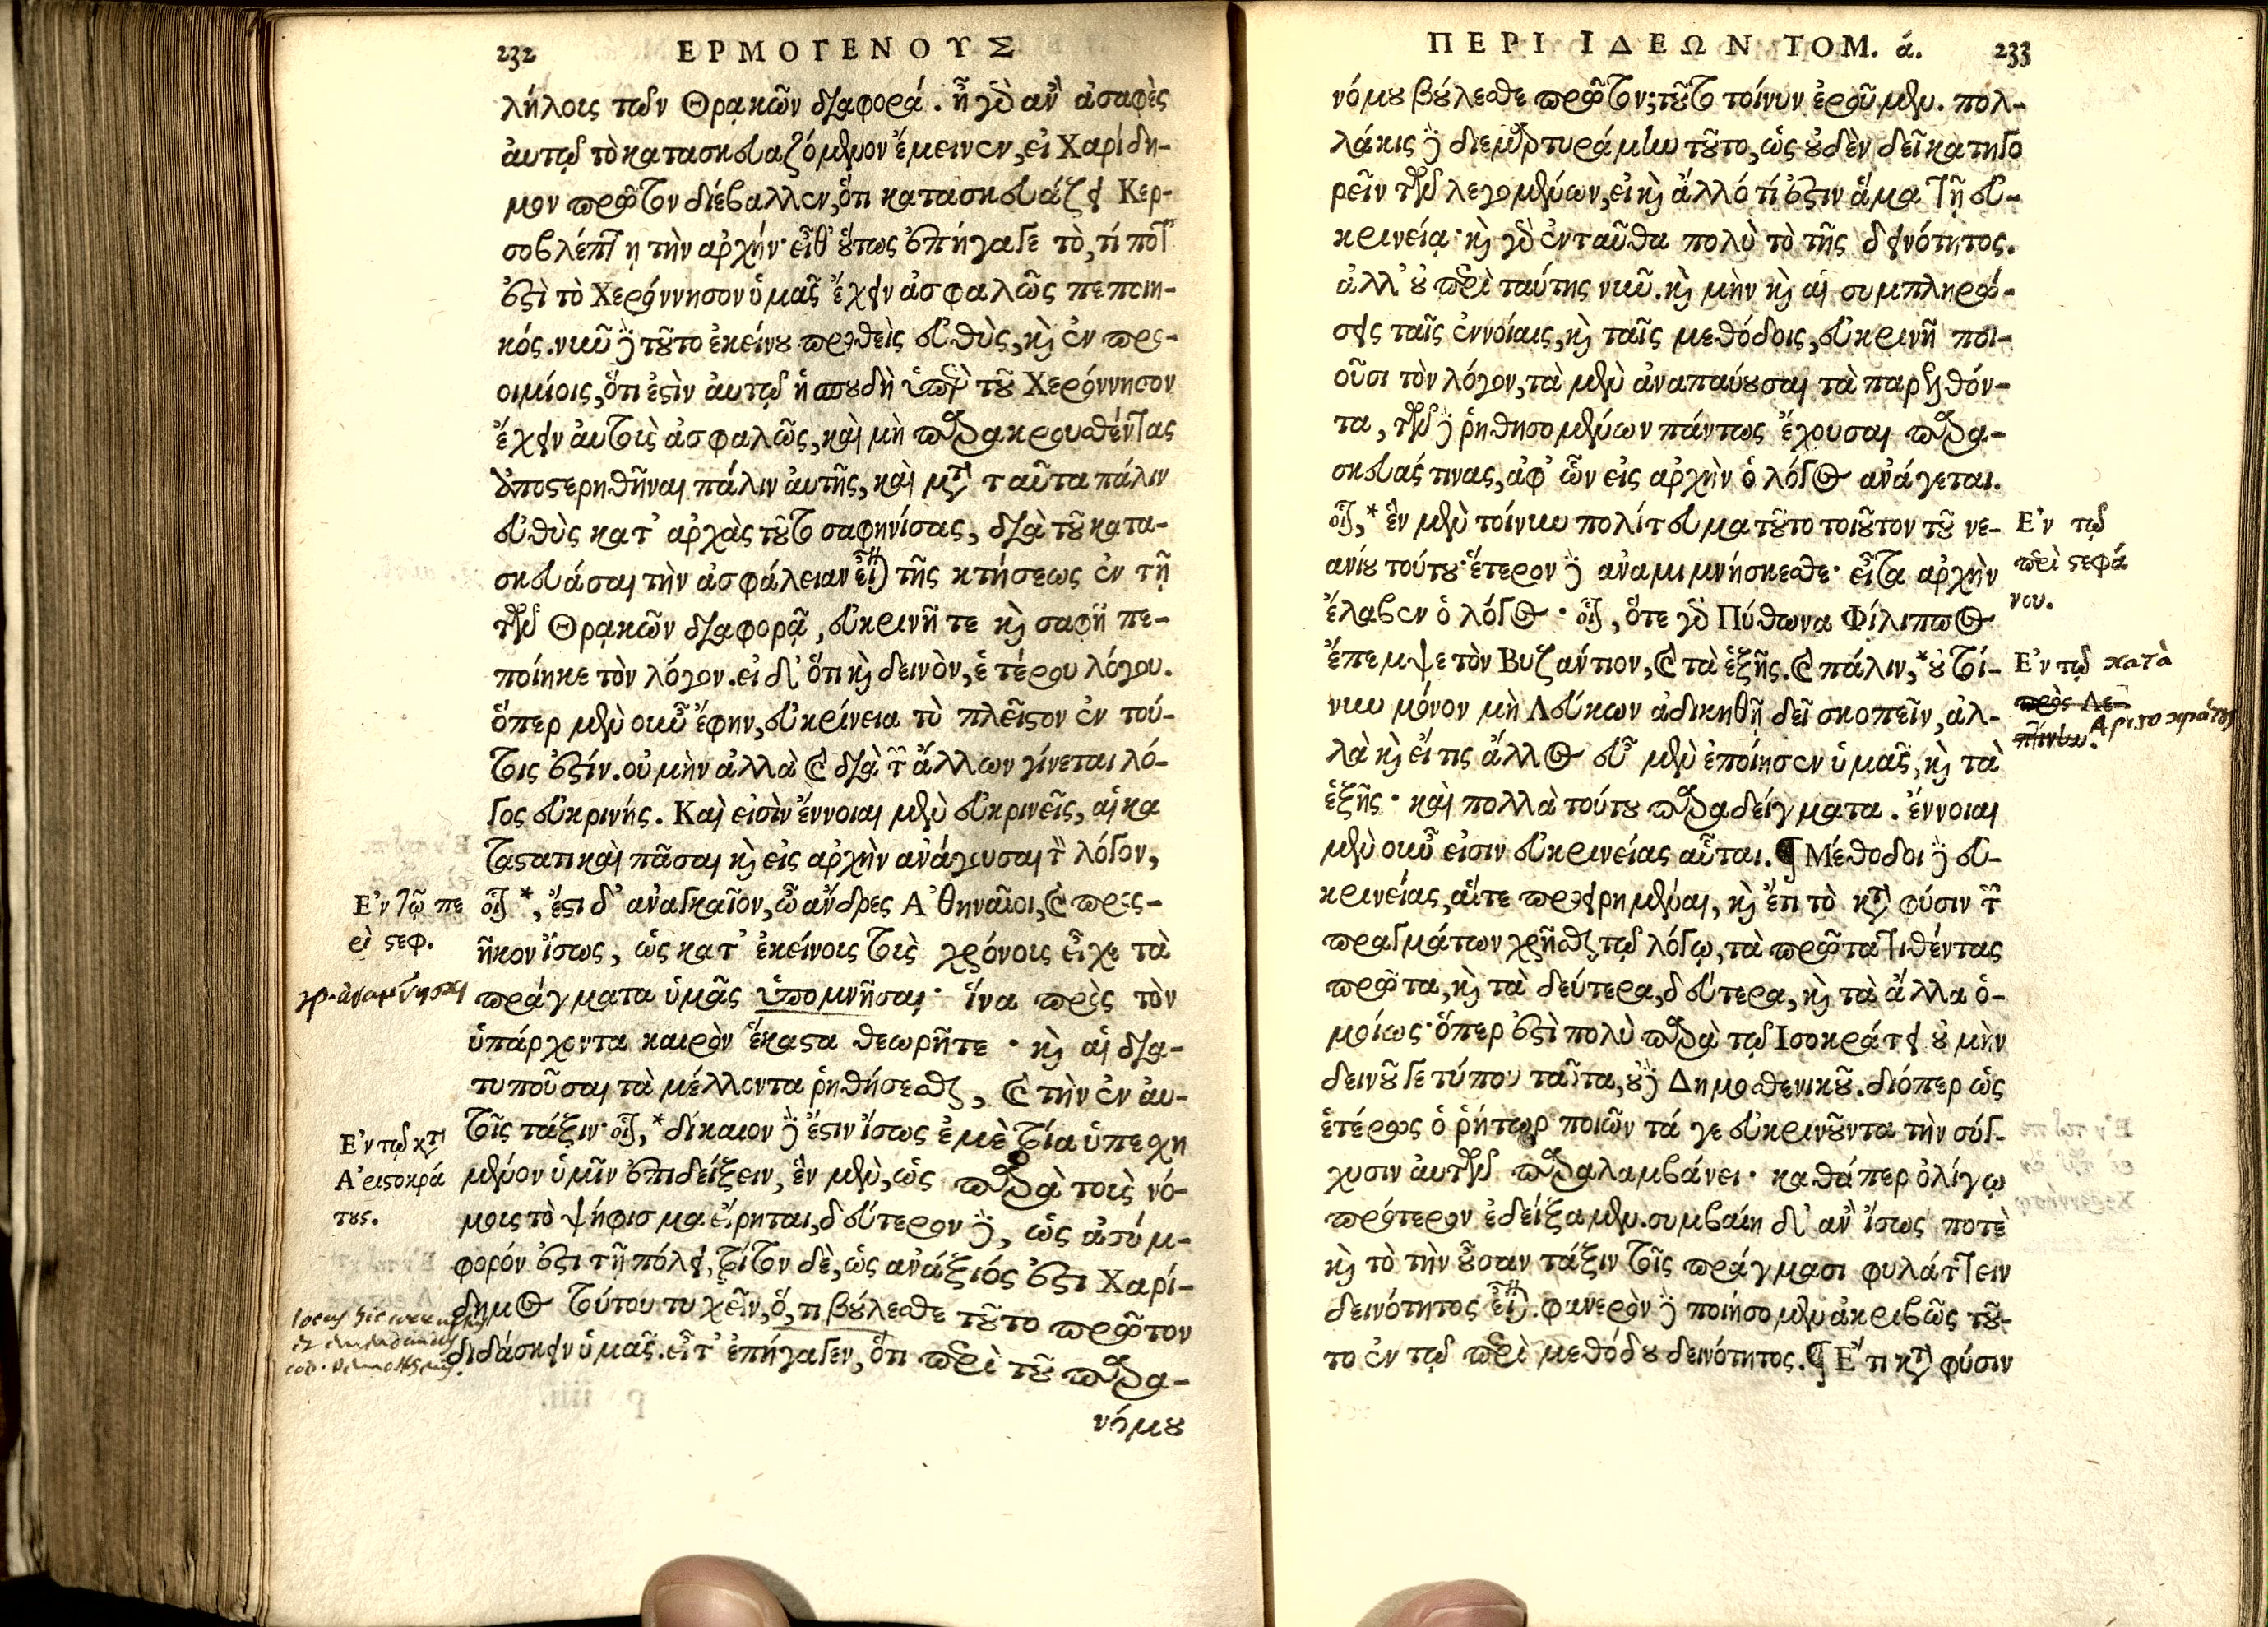 232 ΕΡΜΟΓΕΝΟΥΣ
λήλοις τῶν Θρᾳκῶν διαφορά. ἦ γὰρ ἂν ἀσαφὲς
ἀυτῷ τὸ κατασκευαζόμενον ἔμεινεν, εἰ Χαρίδη-
μον πρῶτον διέβαλλεν, ὅτι κατασκευάζει Κερ-
σοβλέπτῃ τὴν ἀρχήν· εἶθ' οὕτως ἐπήγαγε τὸ, τί ποτ'
ἐστὶ τὸ Χερόννησον ὑμᾶς ἔχειν ἀσφαλῶς πεποιη-
κός. νῦν δὲ τοῦτο ἐκείνου προθεὶς εὐθὺς, καὶ ἐν προ-
οιμίοις, ὅτι ἐστὶν ἀυτῷ ἡ σπουδὴ ὑπὲρ τοῦ Χερόννησον
ἔχειν ἀυτοὺς ἀσφαλῶς, καὶ μὴ παρακρουσθέντας
ἀποστερηθῆναι πάλιν ἀυτῆς, καὶ μετὰ ταῦτα πάλιν
εὐθὺς κατ' ἀρχὰς τοῦτο σαφηνίσας, διὰ τοῦ κατα-
σκευάσαι τὴν ἀσφάλειαν εἶναι τῆς κτήσεως ἐν τῇ
τῶν Θρᾳκῶν διαφορᾷ, εὐκρινῆ τε καὶ σαφῆ πε-
ποίηκε τὸν λόγον. εἰ δ' ὅτι καὶ δεινὸν, ἑτέρου λόγου.
ὅπερ μὲν οὖν ἔφην, εὐκρίνεια τὸ πλεῖστον ἐν τού-
τοις ἐστίν. οὐ μὴν ἀλλὰ καὶ διὰ τῶν ἄλλων γίνεται λό-
γος εὐκρινής. Καὶ εἰσὶν ἔννοιαι μὲν εὐκρινεῖς, αἱ κα
ταστατικαὶ πᾶσαι καὶ εἰς ἀρχὴν ἀνάγουσαι τὸν λόγον,
οἷον *, ἔστι δ' ἀναγκαῖον, ὦ ἄνδρες Ἀθηναῖοι, καὶ προσ-
ῆκον ἴσως, ὡς κατ' ἐκείνοις τοὺς χρόνοις εἶχε τὰ
πράγματα ὑμᾶς ὑπομνῆσαι· ἵνα πρὸς τὸν
ὑπάρχοντα καιρὸν ἕκαστα θεωρῆτε· καὶ αἱ δια-
τυποῦσαι τὰ μέλλοντα ῥηθήσεσθαι, καὶ τὴν ἐν ἀυ-
τοῖς τάξιν· οἷον, * δίκαιον δὲ ἔστιν ἴσως ἐμὲ τρία ὑπεσχη
μένον ὑμῖν ἐπιδείξειν, ἓν μὲν, ὡς παρὰ τοὺς νό-
μοις τὸ ψήφισμα εἴρηται, δεύτερον δὲ, ὡς ἀσύμ-
φορόν ἐστι τῇ πόλει, τρίτον δὲ, ὡς ἀνάξιός ἐστι Χαρί-
δημος τούτου τυχεῖν, ὅ, τι βούλεσθε τοῦτο πρῶτον
διδάσκειν ὑμᾶς. εἶτ' ἐπήγαγεν, ὅτι περὶ τοῦ παρα-
νόμου
Ἐν τῷ πε
ρὶ στεφ.
γρ. ἀναμνῆσαι
Ἐν τῷ κατὰ
Ἀριστοκρά
τους.
ΠΕΡΙ ΙΔΕΩΝ ΤΟΜ. ά. 233
νόμου βούλεσθε πρῶτον; τοῦτο τοίνυν ἐροῦμεν. πολ-
λάκις δὲ διεμαρτυράμην τοῦτο, ὡς οὐδὲν δεῖ κατηγο
ρεῖν τῶν λεγομένων, εἰ καὶ ἄλλό τί ἐστιν ἅμα τῇ εὐ-
κρινείᾳ· καὶ γὰρ ἐνταῦθα πολὺ τὸ τῆς δεινότητος.
ἀλλ' οὐ περὶ ταύτης νῦν. καὶ μὴν καὶ αἱ συμπληρώ-
σεις ταῖς ἐννοίαις, καὶ ταῖς μεθόδοις, εὐκρινῆ ποι-
οῦσι τὸν λόγον, τὰ μὲν ἀναπαύουσαι τὰ παρελθόν-
τα, τῶν δὲ ῥηθησομένων πάντως ἔχουσαι παρα-
σκευάς τινας, ἀφ' ὧν εἰς ἀρχὴν ὁ λόγος ἀνάγεται.
οἷον, * ἓν μὲν τοίνυν πολίτευμα τοῦτο τοιοῦτον τοῦ νε-
ανίου τούτου· ἕτερον δὲ ἀναμιμνήσκεσθε· εἶτα ἀρχὴν
ἔλαβεν ὁ λόγος· οἷον, ὅτε γὰρ Πύθωνα Φίλιππος
ἔπεμψε τὸν Βυζάντιον, καὶ τὰ ἑξῆς. καὶ πάλιν, * οὐ τοί-
νυν μόνον μὴ Λεύκων ἀδικηθῇ δεῖ σκοπεῖν, ἀλ-
λὰ καὶ εἴ τις ἄλλος εὖ μὲν ἐποίησεν ὑμᾶς, καὶ τὰ
ἑξῆς· καὶ πολλὰ τούτου παραδείγματα. ἔννοιαι
μὲν οὖν εἰσιν εὐκρινείας αὗται. ¶ Μέθοδοι δὲ εὐ-
κρινείας, αἵτε προειρημέναι, καὶ ἔτι τὸ κατὰ φύσιν τῶν
πραγμάτων χρῆσθαι τῷ λόγῳ, τὰ πρῶτα τιθέντας
πρῶτα, καὶ τὰ δεύτερα, δεύτερα, καὶ τὰ ἄλλα ὁ-
μοίως· ὅπερ ἐστὶ πολὺ παρὰ τῷ Ισοκράτει οὐ μὴν
δεινοῦ γε τύπου ταῦτα, οὐδὲ Δημοσθενικοῦ. διόπερ ὡς
ἑτέρως ὁ ῥήτωρ ποιῶν τά γε εὐκρινοῦντα τὴν σύγ-
χυσιν ἀυτῶν παραλαμβάνει· καθάπερ ὀλίγῳ
πρότερον ἐδείξαμεν. συμβαίη δ' ἂν ἴσως ποτὲ
καὶ τὸ τὴν οὖσαν τάξιν τοῖς πράγμασι φυλάττειν
δεινότητος εἶναι. φανερὸν δὲ ποιήσομεν ἀκριβῶς τοῦ-
το ἐν τῷ περὶ μεθόδου δεινότητος. ¶ Ἔτι κατὰ φύσιν
Ἐν τῷ
περὶ στεφά
νου.
Ἐν τῷ κατὰ
πρὸς Λε-
πτίνην. Αριστοκράτους